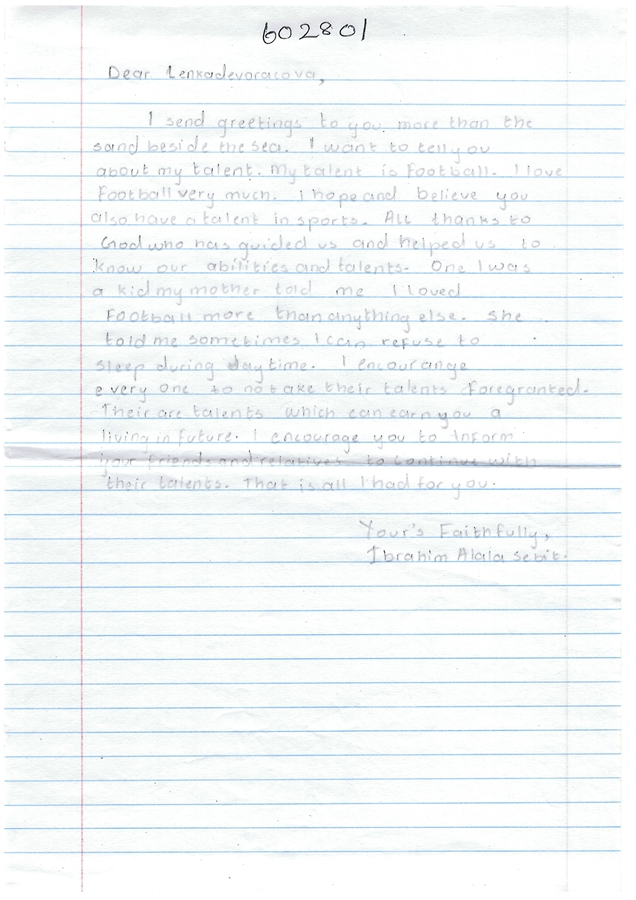 602801
Dear Lenkadevoracova,
I send greetings to you more than the
sand beside the sea. I want to tell you
about my talent. My talent is Football. I love
Football very much. I hope and believe you
also have a talent in sports. All thanks to
God who has guided us and helped us to
know our abilities and talents. One I was
a kid my mother told me I loved
Football more than anything else. She
told me sometimes I can refuse to
sleep during day time. I encourange
every one to not take their talents foregranted.
Their are talents which can earn you a
living in future. I encourage you to inform
your friends and relatives to continue with
their talents. That is all I had for you.
Your's Faithfully,
Ibrahim Alala Sebit.